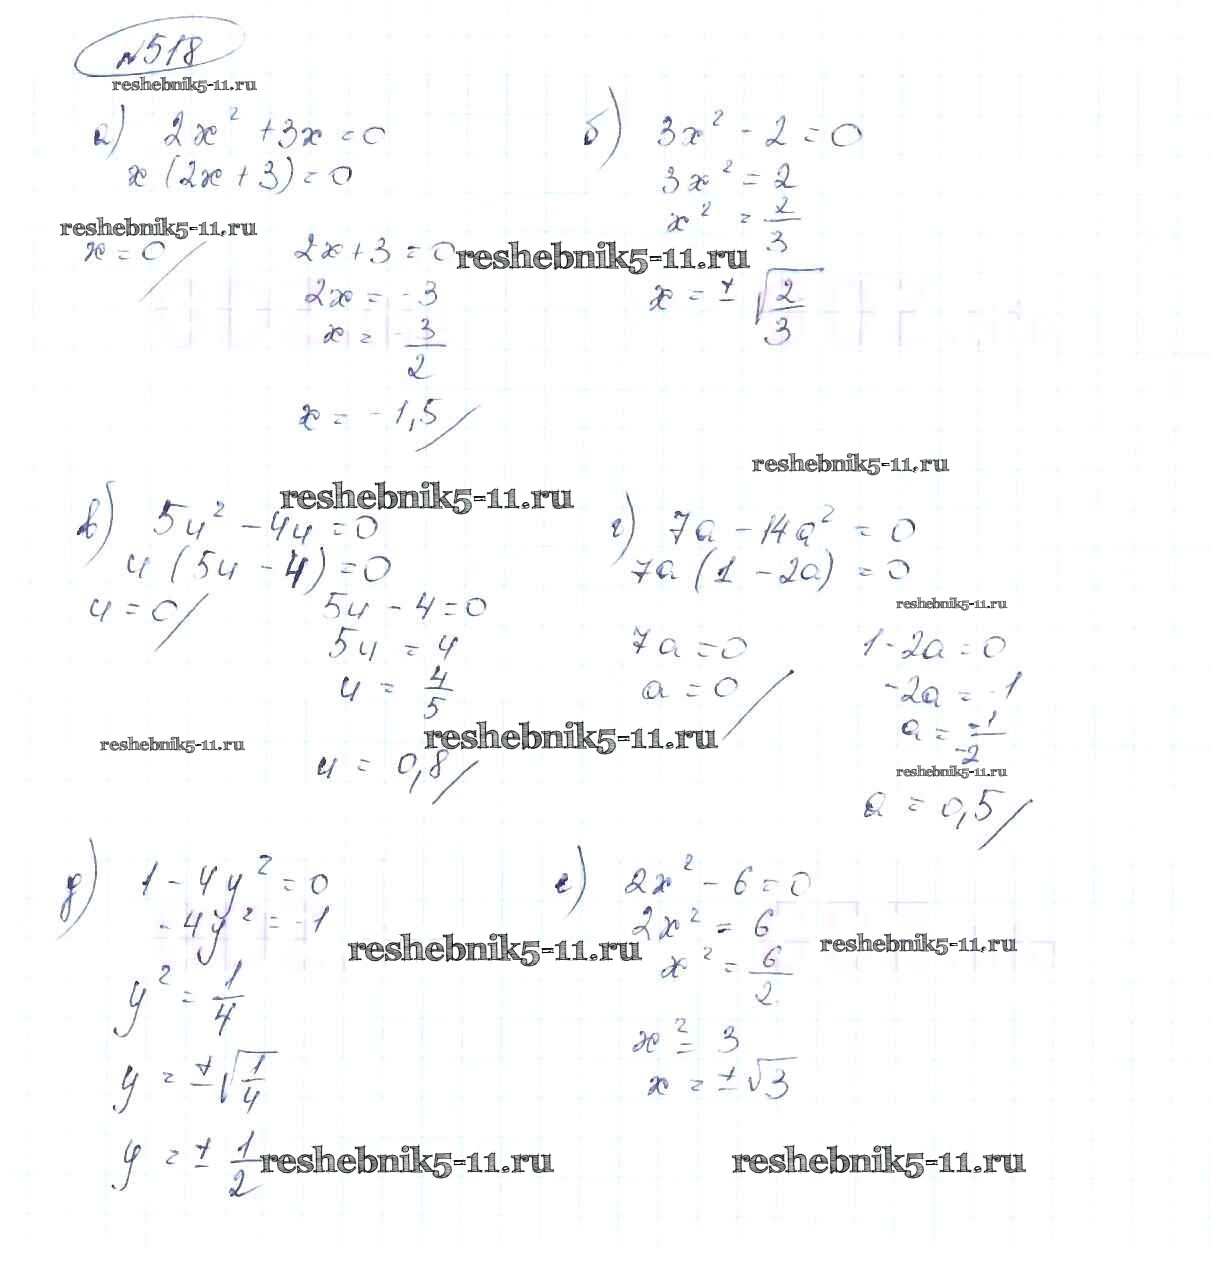 №518
reshebnik5-11.ru
а) 2x² + 3x = 0
x (2x + 3) = 0
reshebnik5-11.ru
x = 0
2x + 3 = 0
2x = -3
x = -3/2
x = -1,5
б) 3x² - 2 = 0
3x² = 2
x² = 2/3
reshebnik5-11.ru
x = ± √(2/3)
reshebnik5-11.ru
reshebnik5-11.ru
в) 5u² - 4u = 0
u (5u - 4) = 0
u = 0
5u - 4 = 0
5u = 4
u = 4/5
reshebnik5-11.ru
reshebnik5-11.ru
u = 0,8
г) 7a - 14a² = 0
7a (1 - 2a) = 0
reshebnik5-11.ru
7a = 0
a = 0
1 - 2a = 0
-2a = -1
a = -1/-2
reshebnik5-11.ru
a = 0,5
д) 1 - 4y² = 0
-4y² = -1
reshebnik5-11.ru
y² = 1/4
y = ± √(1/4)
y = ± 1/2
reshebnik5-11.ru
е) 2x² - 6 = 0
2x² = 6
reshebnik5-11.ru
x² = 6/2
x² = 3
x = ± √3
reshebnik5-11.ru